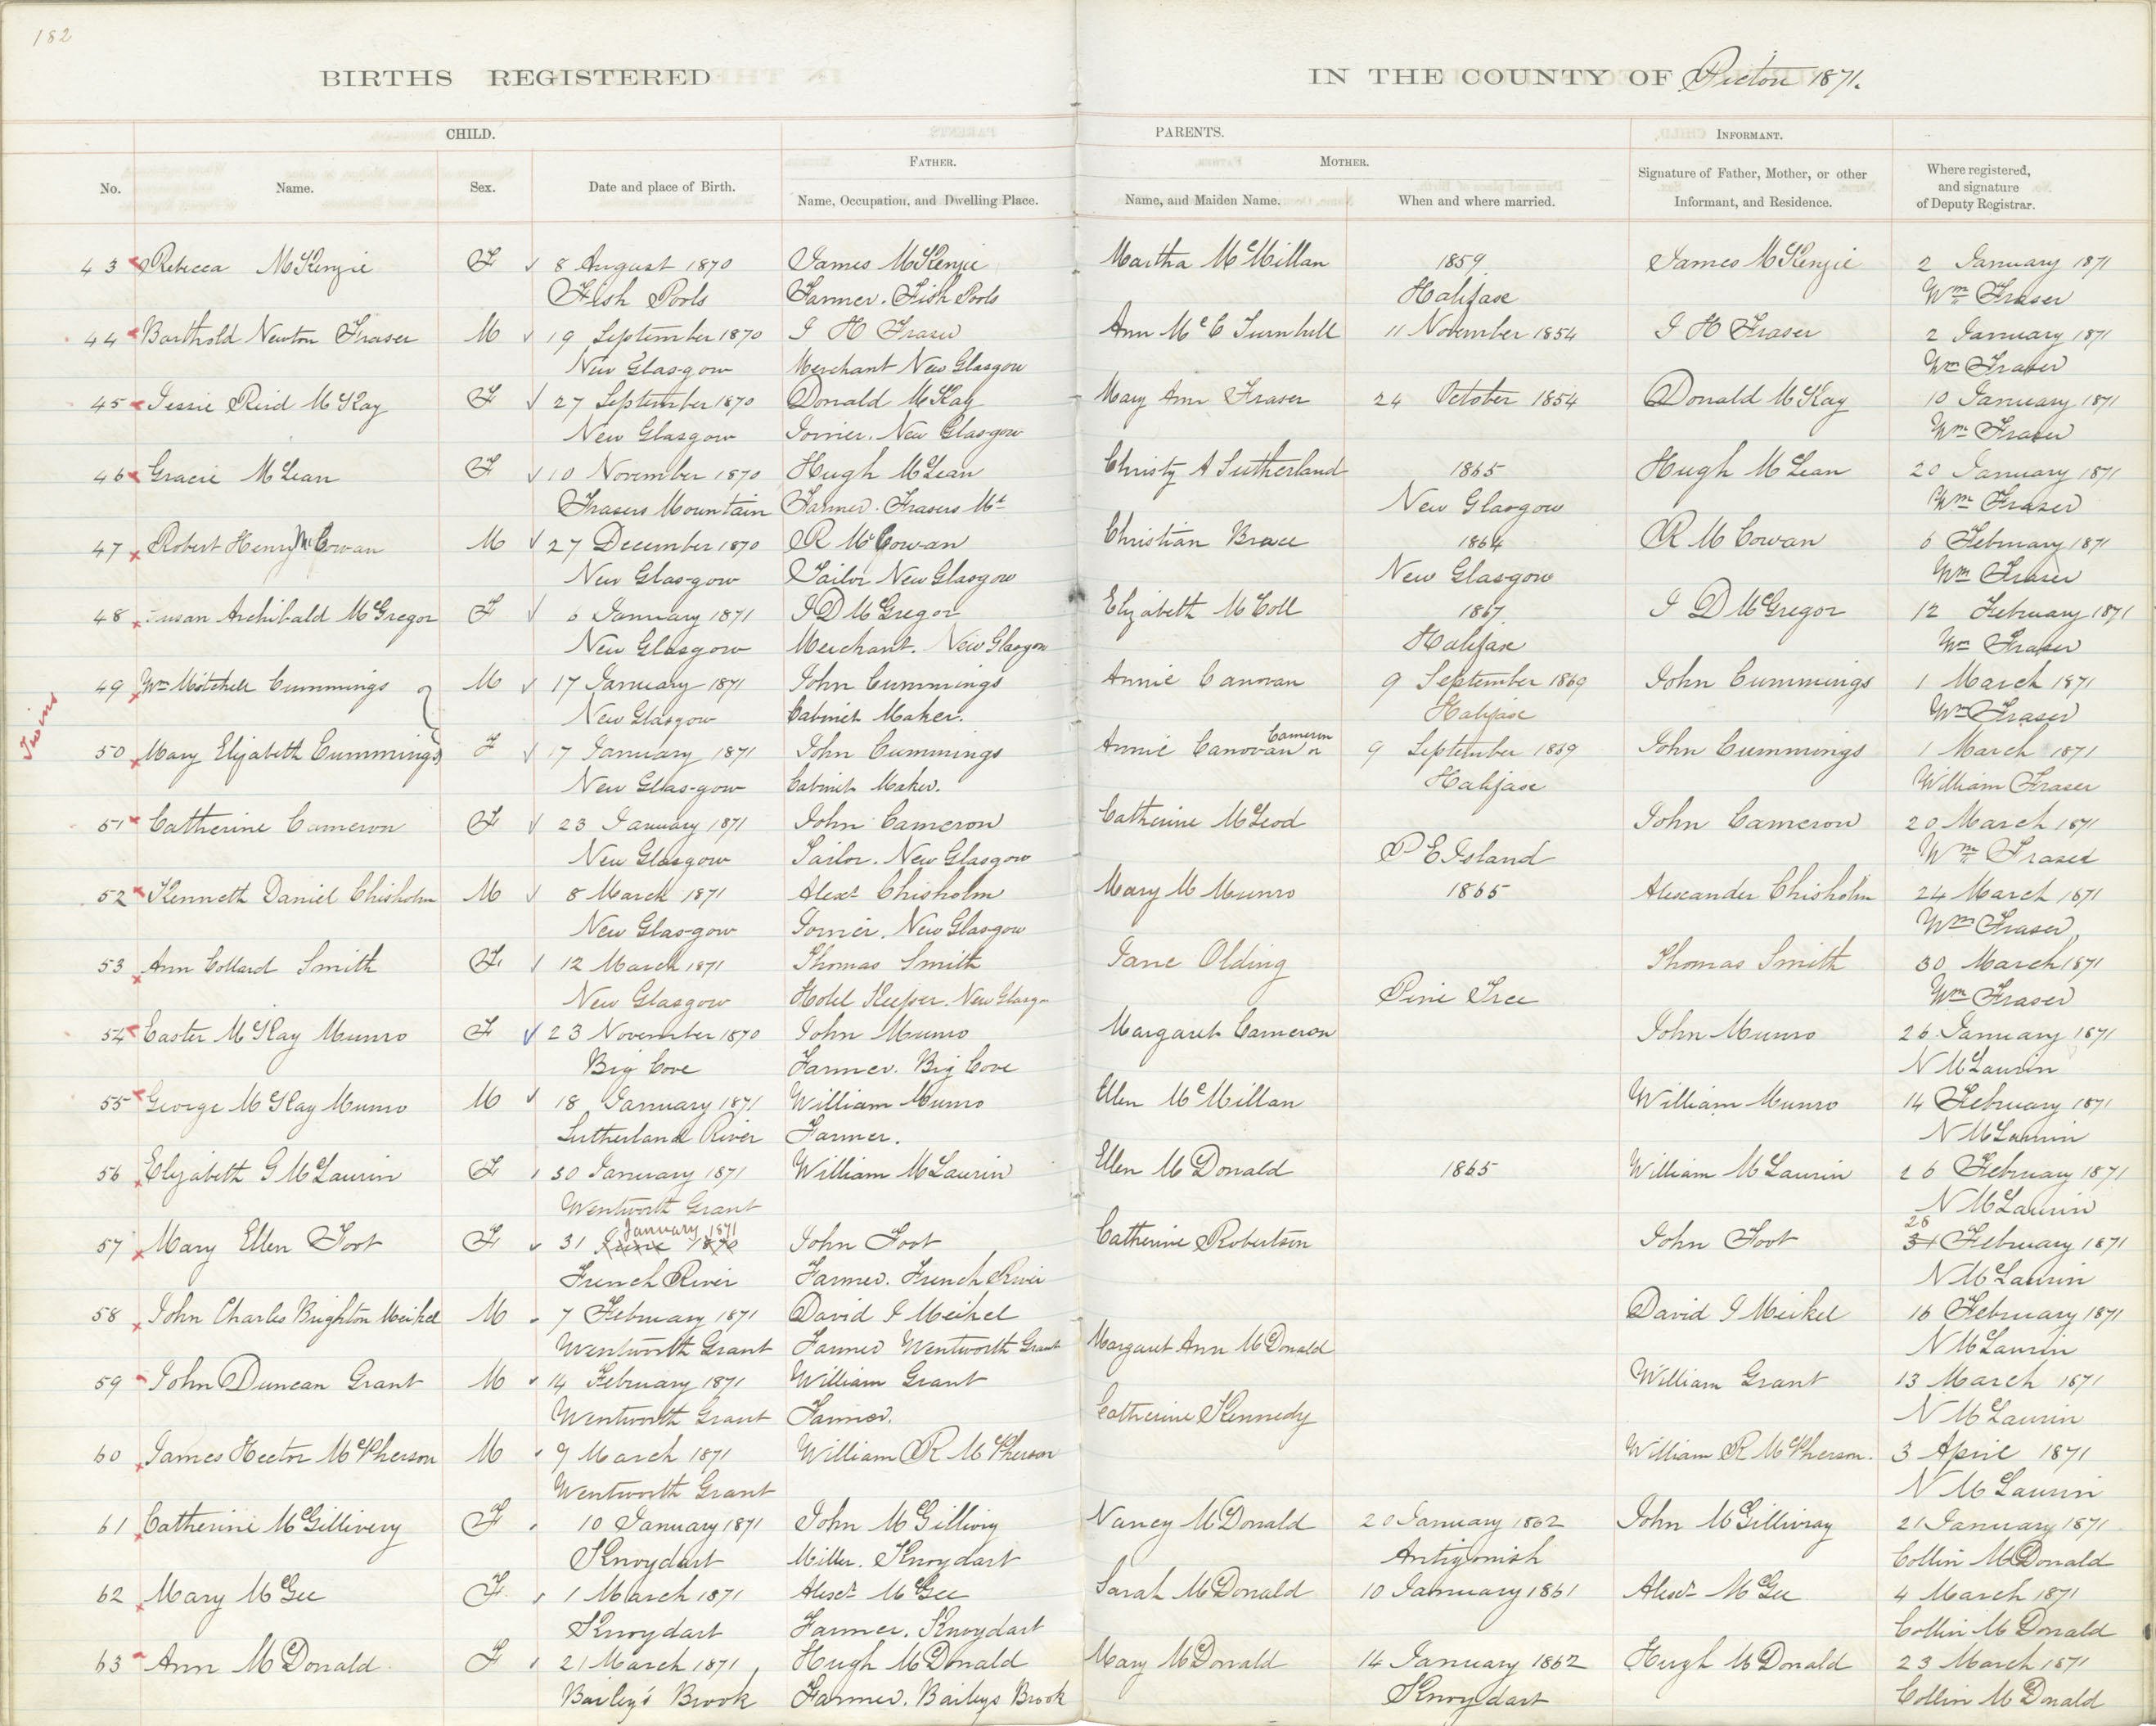 182
BIRTHS REGISTERED IN THE COUNTY OF Pictou 1871.
CHILD. PARENTS. INFORMANT.
FATHER. MOTHER.
No. Name. Sex. Date and place of Birth. Name, Occupation, and Dwelling Place. Name, and Maiden Name. When and where married. Signature of Father, Mother, or other Informant, and Residence. Where registered, and signature of Deputy Registrar.
43 Rebecca McKenzie F 8 August 1870 James McKenzie Martha McMillan 1859 James McKenzie 2 January 1871
Fish Pools Farmer. Fish Pools Halifax Wm Fraser
44 Barthold Newton Fraser M 19 September 1870 J H Fraser Ann McC Turnbull 11 November 1854 J H Fraser 2 January 1871
New Glasgow Merchant New Glasgow Wm Fraser
45 Jessie Reid McKay F 27 September 1870 Donald McKay Mary Ann Fraser 24 October 1854 Donald McKay 10 January 1871
New Glasgow Joiner. New Glasgow Wm Fraser
46 Gracie McLean F 10 November 1870 Hugh McLean Christy A Sutherland 1865 Hugh McLean 20 January 1871
Frasers Mountain Farmer. Frasers Mt New Glasgow Wm Fraser
47 Robert Henry McCowan M 27 December 1870 R McCowan Christian Brace 1864 R McCowan 6 February 1871
New Glasgow Tailor New Glasgow New Glasgow Wm Fraser
48 Susan Archibald McGregor F 6 January 1871 J D McGregor Elizabeth McColl 1867 J D McGregor 12 February 1871
New Glasgow Merchant. New Glasgow Halifax Wm Fraser
Twins
49 Wm Mitchell Cummings M 17 January 1871 John Cummings Annie Canovan 9 September 1869 John Cummings 1 March 1871
New Glasgow Cabinet Maker. Halifax Wm Fraser
50 Mary Elizabeth Cummings F 17 January 1871 John Cummings Annie Canovan or Cameron 9 September 1869 John Cummings 1 March 1871
New Glasgow Cabinet Maker. Halifax William Fraser
51 Catherine Cameron F 23 January 1871 John Cameron Catherine McLeod John Cameron 20 March 1871
New Glasgow Tailor. New Glasgow P E Island Wm Fraser
52 Kenneth Daniel Chisholm M 8 March 1871 Alexr Chisholm Mary M Munro 1865 Alexander Chisholm 24 March 1871
New Glasgow Joiner. New Glasgow Wm Fraser
53 Ann Collard Smith F. 12 March 1871 Thomas Smith Jane Olding Thomas Smith 30 March 1871
New Glasgow Hotel Keeper. New Glasg- Pine Tree Wm Fraser
54 Easter McKay Munro F 23 November 1870 John Munro Margaret Cameron John Munro 26 January 1871
Big Cove Farmer. Big Cove N McLaurin
55 George McKay Munro M 18 January 1871 William Munro Ellen McMillan William Munro 14 February 1871
Sutherland River Farmer. N McLaurin
56 Elizabeth G McLaurin F 30 January 1871 William McLaurin Ellen McDonald 1865 William McLaurin 26 February 1871
Wentworth Grant N McLaurin
January 1871 28
57 Mary Ellen Foot F 31 June 1870 John Foot Catherine Robertson John Foot 31 February 1871
French River Farmer. French River N McLaurin
58 John Charles Brighton Meikel M 7 February 1871 David J Meikel David J Meikel 16 February 1871
Wentworth Grant Farmer Wentworth Grant Margaret Ann McDonald N McLaurin
59 John Duncan Grant M 14 February 1871 William Grant William Grant 13 March 1871
Wentworth Grant Farmer. Catherine Kennedy N McLaurin
60 James Hector McPherson M 9 March 1871 William R McPherson William R McPherson. 3 April 1871
Wentworth Grant N McLaurin
61 Catherine McGillivery F 10 January 1871 John McGillivry Nancy McDonald 20 January 1862 John McGillivray 21 January 1871
Knoydart Miller. Knoydart Antigonish Collin McDonald
62 Mary McGee F. 1 March 1871 Alexr McGee Sarah McDonald 10 January 1861 Alexr McGee 4 March 1871
Knoydart Farmer. Knoydart Collin McDonald
63 Ann McDonald F 21 March 1871 Hugh McDonald Mary McDonald 14 January 1862 Hugh McDonald 23 March 1871
Bailey's Brook Farmer. Baileys Brook Knoydart Collin McDonald